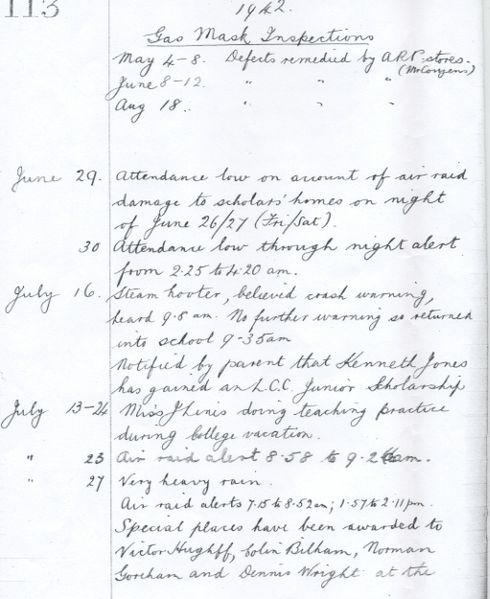 113
1942.
Gas Mask Inspections
May 4-8. Defects remedied by ARP stores.
(Mr Cozens)
June 8-12. " " "
Aug 18. " " "
June 29. Attendance low on account of air raid
damage to scholars' homes on night
of June 26/27 (Fri/Sat).
30 Attendance low through night alert
from 2.25 to 4.20 am.
July 16. Steam hooter, believed crash warning,
heard 9.8 am. No further warning so returned
into school 9-35am
Notified by parent that Kenneth Jones
has gained an L.C.C. Junior Scholarship
July 13-24 Miss doing teaching practice
during College vacation.
" 23 Air raid alert 8.58 to 9.26am.
" 27 Very heavy rain.
Air raid alerts 7.15 to 8.52am; 1.57 to 2.11pm.
Special places have been awarded to
Victor Hughff, Colin Bilham, Norman
Goreham and Dennis Wright at the